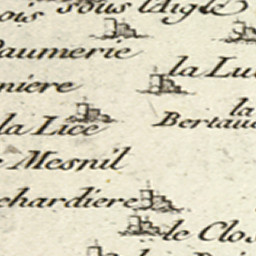 ois sous l'Aigle
Paumerie
niere
la Lu
la Lice
la
Bertau
Mesnil
ehardiere
le Clos